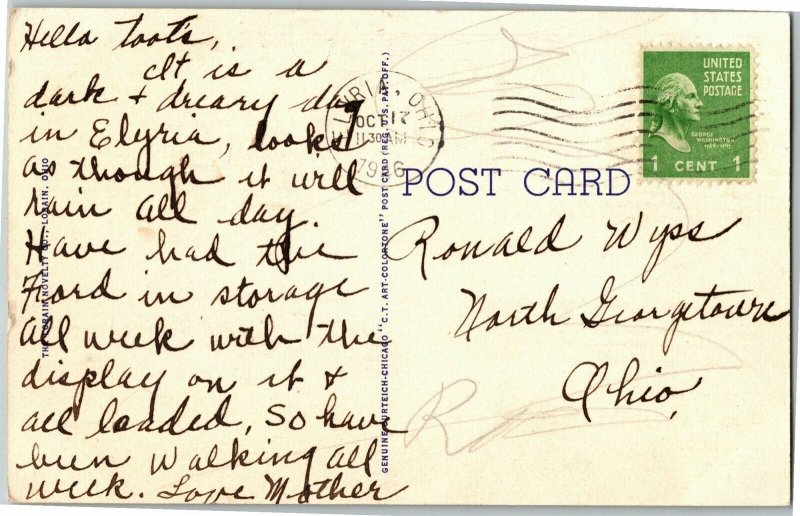 Hello Toots,
It is a
dark + dreary day
in Elyria, looks
as though it will
rain all day.
Have had the
Ford in storage
all week with the
display on it +
all loaded, So have
been walking all
week. Love Mother
THE LORAIN NOVELTY CO., LORAIN, OHIO
GENUINE CURTEICH-CHICAGO "C.T. ART-COLORTONE" POST CARD (REG. U.S. PAT. OFF.)
ELYRIA, OHIO
OCT 17
11 30 AM
UNITED
STATES
POSTAGE
GEORGE
WASHINGTON
1 CENT 1
POST CARD
Ronald Wyss
North Georgetown
Ohio,